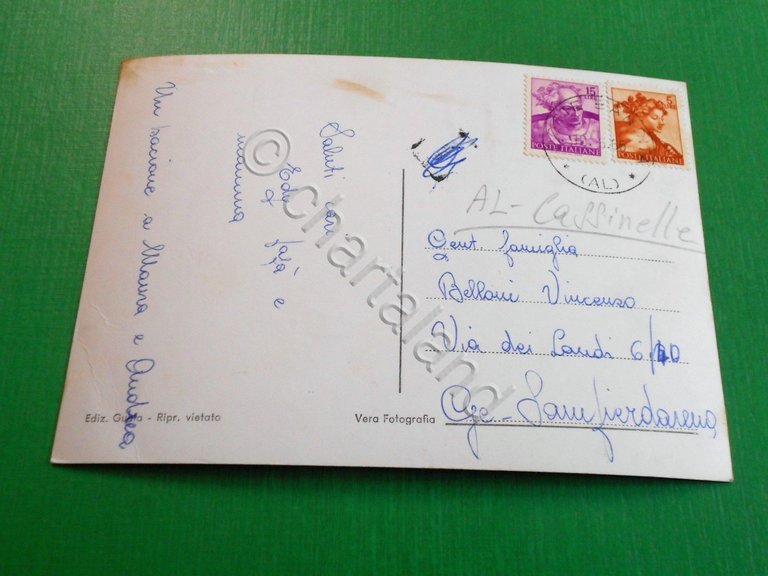 Un bacione a Maura e Andrea
Saluti cari
Edo e
mamma
15
POSTE ITALIANE
5
POSTE ITALIANE
(AL)
AL - Cassinelle
Gent. famiglia
Belloni Vincenzo
Via dei Landi 6/10
Ge - Sampierdarena
Ediz. - Ripr. vietata
Vera Fotografia
© chartaland